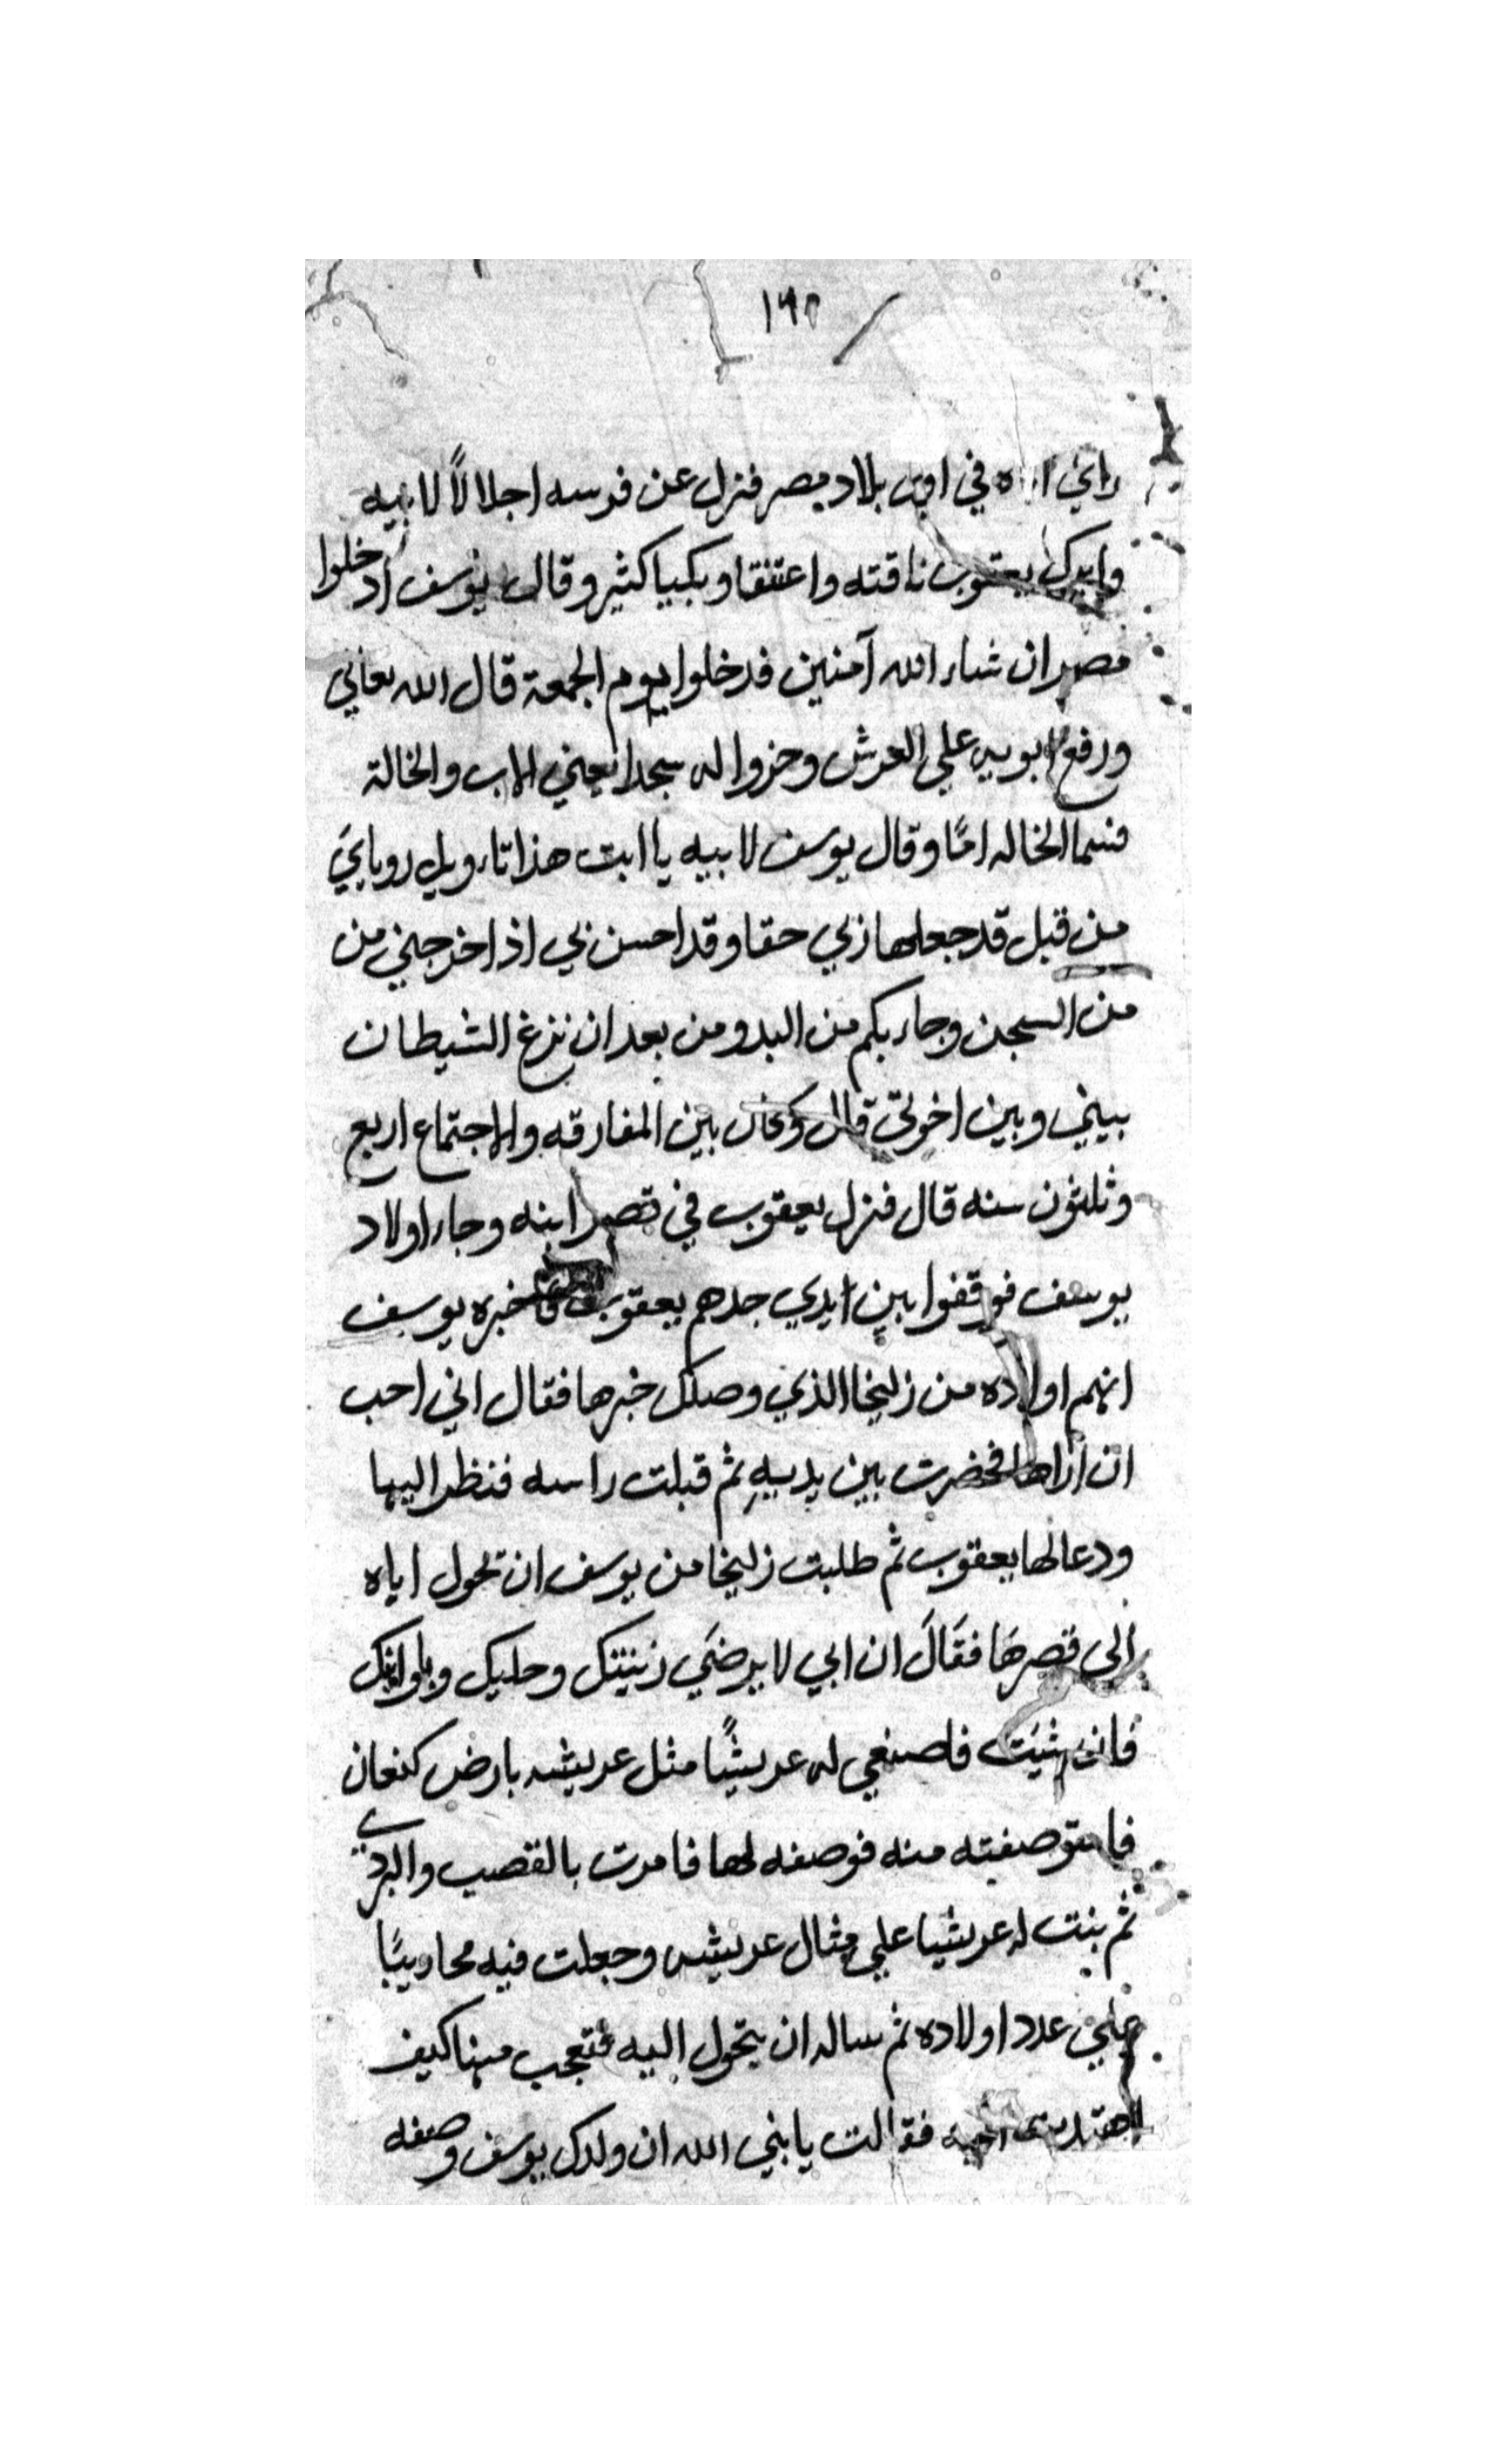 راي اباه في اول بلاد مصر فنزل عن فرسه اجلالاً لابيه
وابرك يعقوب ناقته واعتنقا وبكيا كثير وقال يوسف ادخلوا
مصر ان شاء الله آمنين فدخلوا يوم الجمعة قال الله تعالي
ورفع ابويه علي العرش وخروا له سجدا يعني الاب والخالة
فسما الخاله امًا وقال يوسف لابيه يا ابت هذا تاءويل روياي
من قبل قد جعلها ربي حقا وقد احسن بي اذ اخرجني من
من السجن وجاء بكم من البدو من بعد ان نزغ الشيطان
بيني وبين اخوتي قال وكان بين المفارقه والاجتماع اربع
وثلثون سنه قال فنزل يعقوب في قصر ابنه وجاء اولاد
يوسف فوقفوا بين ايدي جدهم يعقوب فاخبره يوسف
انهم اولاده من زليخا الذي وصلك خبرها فقال اني احب
ان اراها فحضرت بين يديهِ ثم قبلت راسه فنظر اليها
ودعا لها يعقوب ثم طلبت زليخا من يوسف ان تحول اياه
الي قصرهَا فقَالَ ان ابي لا يرضَي زينتك وحليك
فان شيَت فاصنعي له عريشًا مثل عريشه بارض كنعان
فاستوصفته منه فوصفه لها فامرت بالقصب والبردي
ثم بنت له عريشا علي مثال عريشه وجعلت فيه محاريبًا
علي عدد اولاده ثم ساله ان يتحول اليه فتعجب منها كيف
اهتدت فقالت يا بني الله ان ولدك يوسف وصفه